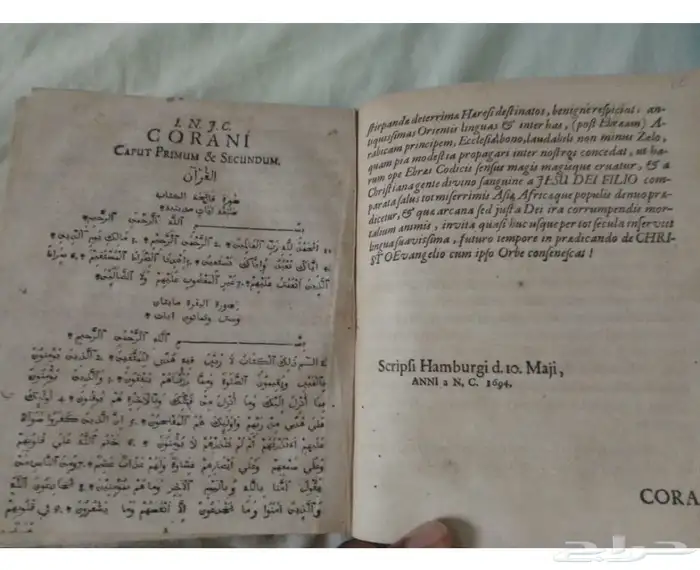 I. N. J. C.
CORANI
CAPUT PRIMUM & SECUNDUM.
القرآن
سورة فاتحة الكتاب
بســـم الله الرحمن الرحيم
الحمد لله رب العالمين الرحمن الرحيم مالك يوم الدين
إياك نعبد وإياك نستعين اهدنا الصراط المستقيم صراط
الذين أنعمت عليهم غير المغضوب عليهم ولا الضالين
سورة البقرة مايتان
وست وثمانون ايات
بســـم الله الرحمن الرحيم
الم ذلك الكتاب لا ريب فيه هدى للمتقين الذين يؤمنون
بالغيب ويقيمون الصلوة ومما رزقناهم ينفقون والذين يؤمنون
بما أنزل إليك وما أنزل من قبلك وبالآخرة هم يوقنون أولئك
على هدى من ربهم وأولئك هم المفلحون إن الذين كفروا سواء
عليهم أأنذرتهم أم لم تنذرهم لا يؤمنون ختم الله على قلوبهم
وعلى سمعهم وعلى أبصارهم غشاوة ولهم عذاب عظيم ومن الناس من
يقول آمنا بالله وباليوم الآخر وما هم بمؤمنين يخادعون الله
والذين آمنوا وما يخدعون إلا أنفسهم وما يشعرون في قلوبهم
stirpanda deterrima Hæresi destinatos, benigne respiciat, an-
tiquissimas Orientis linguas & inter has, (post Ebræam) A-
rabicam principem, Ecclesiæ bono, laudabili non minus Zelo,
quam pia modestia propagari inter nostros concedat, ut ha-
rum ope Ebræi Codicis sensus magis magisque eruatur, & a
Christiana gente divino sanguine a JESU DEI FILIO com-
parata salus tot miserrimis Asiæ Africæque populis denuo præ-
dicetur, & qua arcana sed justa Dei ira corrumpendis mor-
talium animis, invita quasi huc usque per tot secula inserviit
lingua suavissima, futuro tempore in prædicando de CHRI-
STO Evangelio cum ipso Orbe consenescat!
Scripsi Hamburgi d. 10. Maji,
ANNI a N. C. 1694.
CORA
حراج